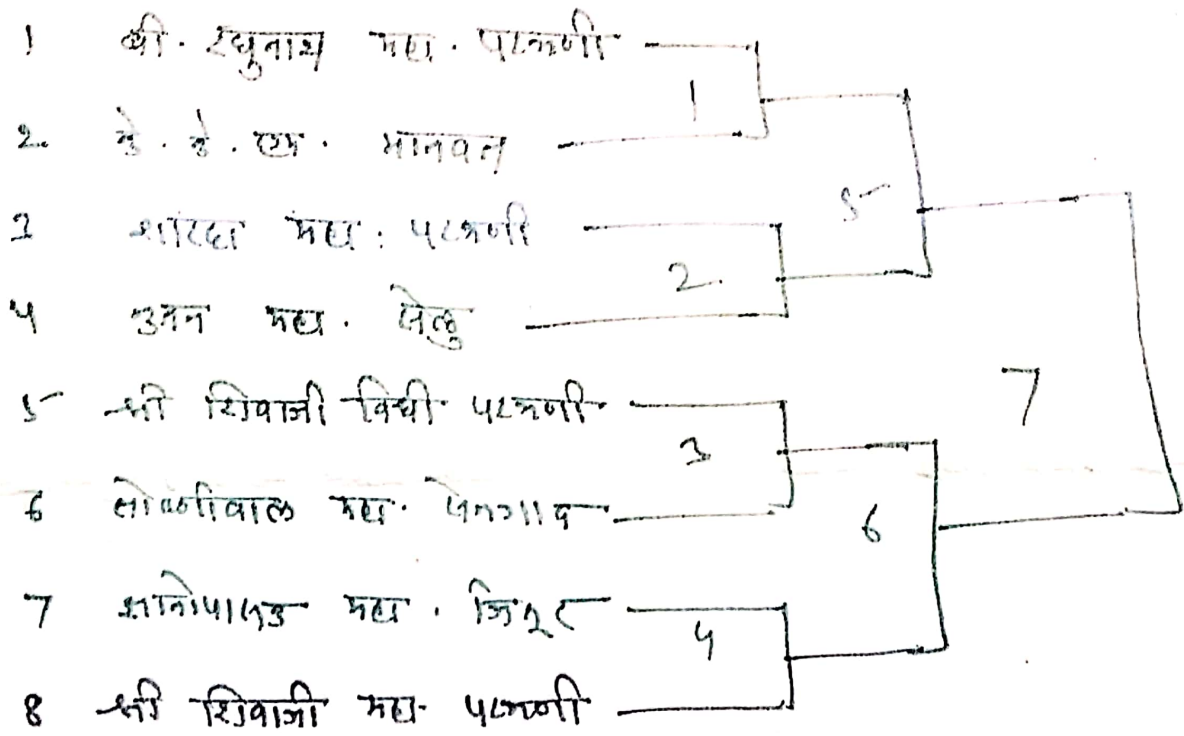 1 बी. रघुनाथ महा. परभणी
2. के. के. एम. मानवत
3 शारदा महा. परभणी
4 नुतन महा. सेलु
5 श्री शिवाजी विधी परभणी
6 महा.
7 ज्ञानोपासक महा. जिंतूर
8 श्री शिवाजी महा. परभणी
1
2.
3
4
5
6
7